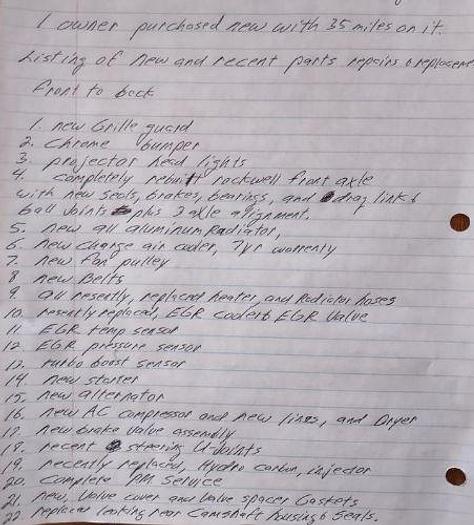 1 owner purchased new with 35 miles on it.
Listing of new and recent parts repairs & replaceme
front to back
1. new Grille guard
2. Chrome bumper
3. projector head lights
4. completely rebuilt rockwell front axle
with new seals, brakes, bearings, and drag link &
ball joints plus 3 axle alignment.
5. new all aluminum Radiator,
6. new Charge air cooler, 7yr warrenty
7. new fan pulley
8 new Belts
9. all resently, replaced heater, and Radiator hoses
10. resently replaced, EGR cooler & EGR Valve
11. EGR temp sensor
12. EGR pressure sensor
13. turbo boost sensor
14. new starter
15. new alternator
16. new AC compressor and new lines, and Dryer
17. new brake valve assembly
18. recent steering U-Joints
19. recently replaced, Hydro carbon, injector
20. Complete PM Service
21. new, Valve cover and Valve spacer Gaskets
22 replaced leaking rear Camshaft housing & Seals